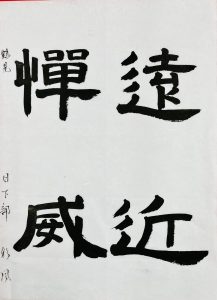 遠近
憚威
鶴見 日下部